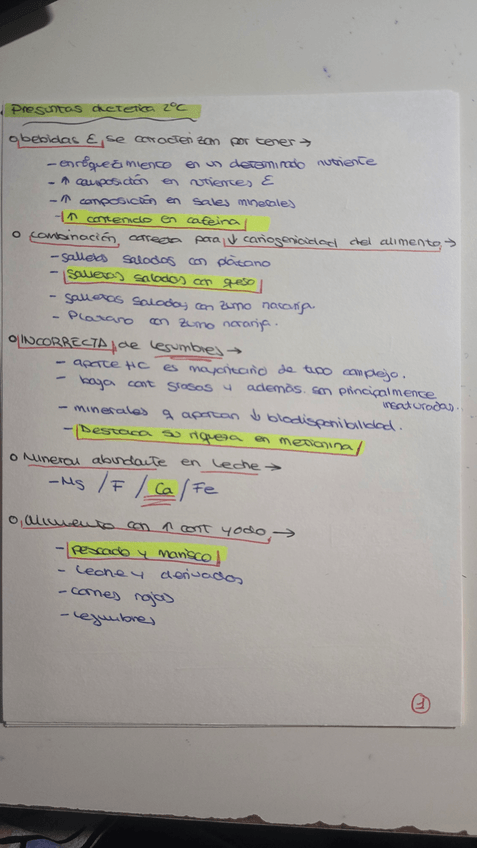 Preguntas dietetica 2ºC
o bebidas E, se caracterizan por tener →
- enriquecimiento en un determinado nutriente
- ↑ composición en nutrientes E
- ↑ composición en sales minerales
- ↑ contenido en cafeína
o combinación correcta para ↓ cariogenicidad del alimento →
- galletas saladas con plátano
- galletas saladas con queso
- galletas saladas con zumo naranja.
- Platano con zumo naranja.
o INCORRECTA de legumbres →
- aporte HC es mayoritario de tipo complejo.
- baja cont grasas y además son principalmente
insaturadas.
- minerales q aportan ↓ biodisponibilidad.
- Destaca su riqueza en metionina
o Mineral abundante en Leche →
- Mg / F / Ca / Fe
o alimento con ↑ cont yodo →
- Pescado y marisco
- Leche y derivados
- carnes rojas
- legumbres
1